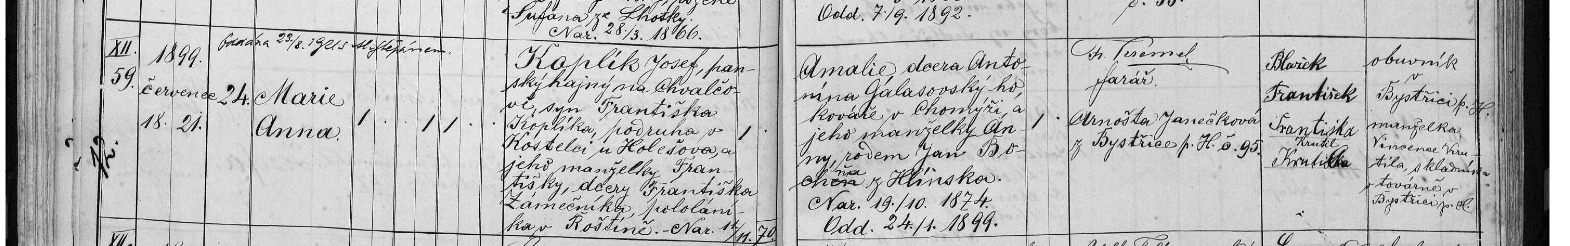 Sufana ze Lhotky.
Nar. 28./3. 1866.
Odd. 7./9. 1892.
XII.
59.
1899.
července
18. 21.
24. Marie
Anna.
Oddána 23/8. 1921 s
12.
Koplík Josef, pan-
ský hajný na Chvalčo-
vě, syn Františka
Koplíka, podruha v
Kostelci u Holešova, a
jeho manželky Fran
tišky, dcery Františka
Zámečníka, pololání-
ka v Roštíně. - Nar. 11/11. 70.
Amalie, dcera Anto-
nína Galasovský ho
kováře v Chomýži, a
jeho manželky An
ny, rodem Jan Bo-
z Hlinska.
Nar. 19./10. 1874.
Odd. 24/1. 1899.
farář.
Arnošta Janečková
z Bystřice p. H. č. 95.
Blažek
František
Františka
Krutil
obuvník
v
Bystřici p. H.
manželka
Vincence Kru-
tila, skladníka
továrně v
Bystřici p. H.
XII.